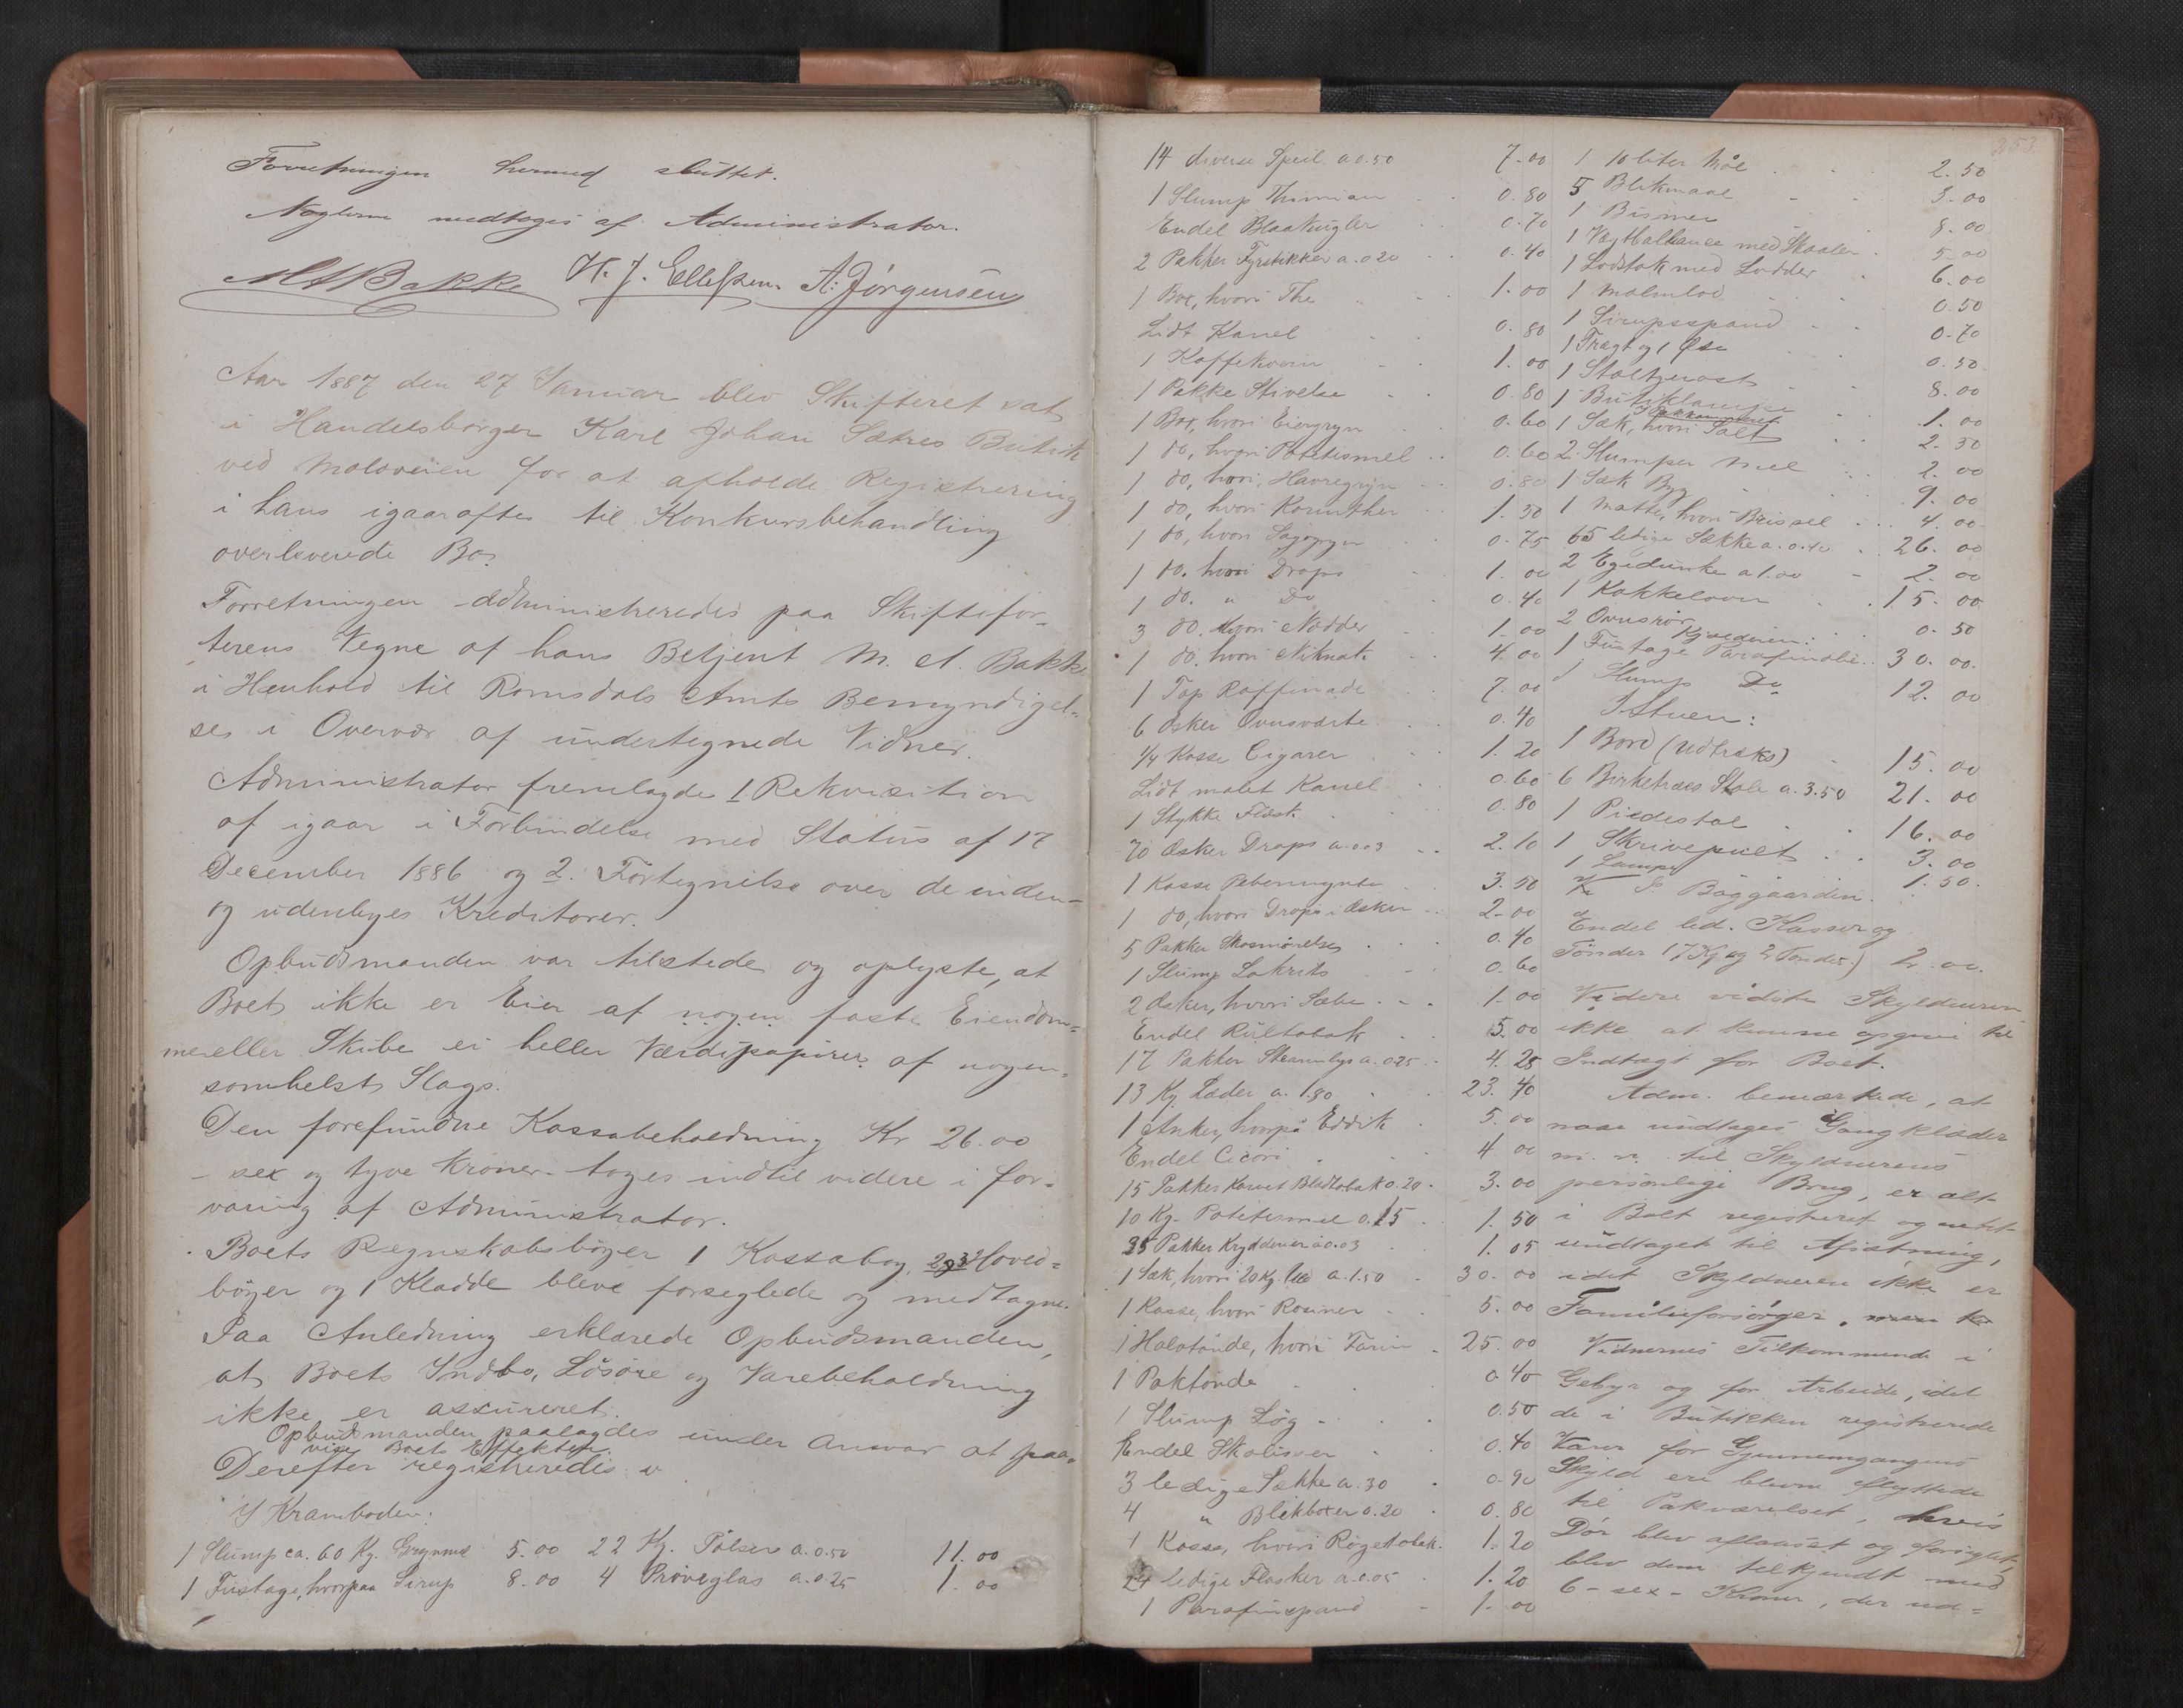 Forretningen hermed sluttet.
Nøglerne medtoges af Administrator.
M A Bakke H. J. Ellefsen. A. Jørgensen
Aar 1887 den 27 Januar blev Skifteret sat
i Handelsborger Karl Johan Sætres Butik
ved Moloveien for at afholde Registrering
i hans igaaraftes til Konkursbehandling
overleverede Bo.
Forretningen administreredes paa Skiftefor-
terens Vegne af hans Betjent M. A. Bakke
i Henhold til Romsdals Amts Bemyndigel-
ses i Overvær af undertegnede Vidner.
Administrator fremlagde 1. Rekvisition
af igaar i Forbindelse med Status af 17
December 1886 og 2. Fortegnelse over de inden-
og udenbyes Kreditorer.
Opbudsmanden var tilstede og oplyste, at
Boet ikke er Eier af nogen faste Eiendom-
me eller Skibe ei heller Værdipapirer af nogen-
somhelst Slags.
Den forefundne Kassabeholdning Kr 26.00
- sex og tyve Kroner - toges indtil videre i for-
varing af Administrator.
Boets Regnskabsbøger 1 Kassabog, 2 Hoved-
bøger og 1 Kladde bleve forseglede og medtagne.
Paa Anledning erklærede Opbudsmanden,
at Boets Indbo, Løsøre og Varebeholdning
ikke er assureret.
Opbudsmanden paalagdes under Ansvar at paa-
vise Boets Effekter.
Derefter registreredes
I Kramboden:
1 Slump ca. 60 Kg. Grynmel 5.00 22 Kg. Pølser a. 0.50 11.00
1 Fustage, hvorpaa Sirup 8.00 4 Prøveglas a. 0.25 1.00
14 diverse Speil a 0.50 7.00
1 Slump Timian 0.80
Endel Blaakugler 0.70
2 Pakker Fyrstikker a. 0 20 0.40
1 Box, hvori The 1.00
Lidt Kanel 0.80
1 Kaffekværn 1.00
1 Pakke Stivelse 0.80
1 Box, hvori Eiergryn 0.60
1 do, hvori Potetesmel 0.60
1 do, hvori, Havregryn 0.80
1 do, hvori Korinther 1.50
1 do, hvori Sagogryn 0.75
1 do. hvori Drops 1.00
1 do. " Do 0.40
3 do. hvori Nødder 1.00
1 do. hvori Viknat. 4.00
1 Top Raffinade 7.00
6 Æsker Ovnsværte 0.40
1/4 Kasse Cigarer 1.20
Lidt malet Kanel 0.60
1 Stykke Flesk 0.80
70 Æsker Drops a. 0 03 2.10
1 Kasse Pebermynte 3.50
1 do, hvori Drops i Æsker 2.00
5 Pakker Skosmørelse 0.40
1 Slump Lakrits 0.60
2 Æsker, hvori Sæbe 1.00
Endel Rultobak 5.00
17 Pakker Stearinlys a. 0 25 4.25
13 Kg Læder a. 1.80 23.40
1 Anker, hvorpå Eddik 5.00
Endel Cicori 4 00
15 Pakker Karvet Bladtobak 0.20 3.00
10 Kg. Potetesmel 0.15 1.50
35 Pakker Krydderier a 0.03 1.05
1 Sæk, hvori 20 Kg. Uld a. 1.50 30.00
1 Kasse, hvori Rosiner 5.00
1 Halvtønde, hvori Farin 25.00
1 Paktønde 0.40
1 Slump Løg 0.50
Endel Skolisser 0.40
3 ledige Sække a. 30 0.90
4 " Blikboxer 0.20 0.80
1 Kasse, hvori Røgetobak. 1.20
24 ledige Flasker a 0.05 1.20
1 Parafinspand 1.00
1 10 liter Mål 2.50
5 Blikmaal 3.00
1 Bismer 8.00
1 Vægtballance med Skaaler 5.00
1 Lodstok med Lodder 6.00
1 Malmlod 0.50
1 Sirupsspand 0.70
1 Tragt og 1 Øse 0.50
1 Staaltjerost 8.00
1 Butiklampe 1.00
1 Sæk, hvori Salt 2.50
2 Slumper Mel 2.00
1 Sæk Byg 9.00
1 Matte, hvori Brissel 4.00
65 ledige Sække a. 0.40 26.00
2 Egedunke a 1.00 2.00
1 Kakkelovn 15.00
2 Ovnsrør 0.50
I Kjælderen:
1 Fustage Parafinolie 30.00.
1 Slump Do 12.00
I Stuen:
1 Bord (Udtræks) 15.00
6 Birketræes Stole a. 3.50 21.00
1 Piedestal 16.00
1 Skrivepult 3.00
1 Lampe 1.50.
I Baggaarden.
Endel led. Kasser og
Tønder (7 K og 2 Tønder) 2.00.
Videre vidste Skyldneren
ikke at kunne opgive til
Indtægt for Boet.
Adm. bemærkede, at
naar undtages Gangklæder
m. v. til Skyldnerens
personlige Brug, er alt
i Boet registreret og intet
undtaget til Afsætning,
idet Skyldneren ikke er
Familieforsørger.
Vidnernes Tilkommende i
Gebyr og for Arbeide, idet
de i Butikken registrerede
Varer for Gjennemgangens
Skyld ere blevne flyttede
til Pakværelset, hvis
Dør blev aflaaset og forseglet,
blev dem tilkjendt med
6 - sex - Kroner, der ud-